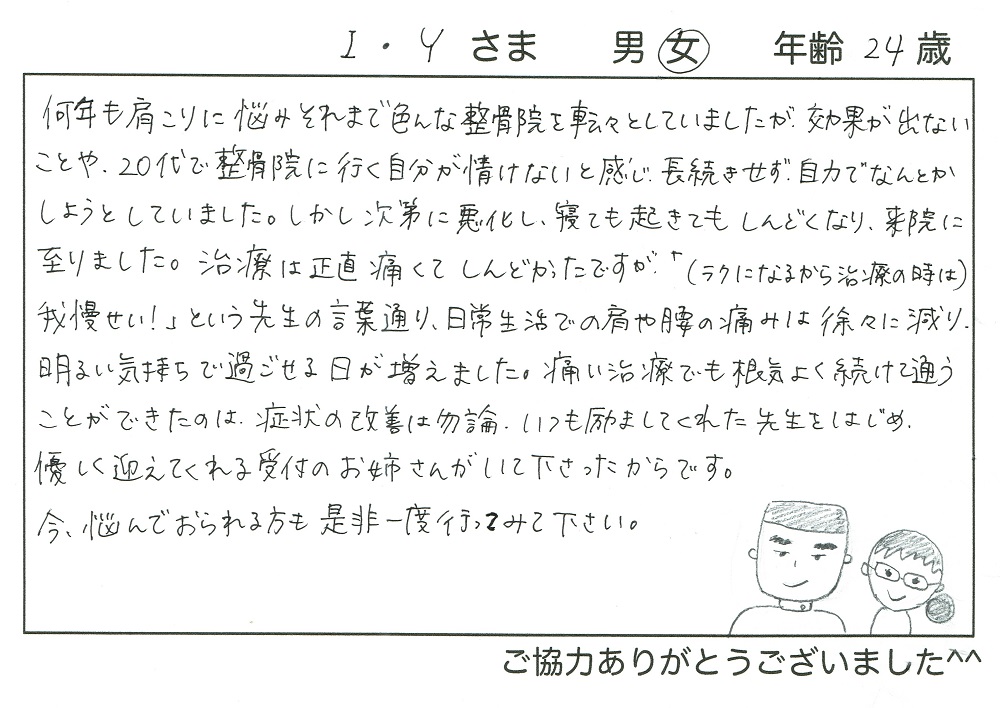 I・Y さま 男 女 年齢 24 歳
何年も肩こりに悩みそれまで色んな整骨院を転々としていましたが、効果が出ない
ことや、20代で整骨院に行く自分が情けないと感じ、長続きせず、自力でなんとか
しようとしていました。しかし次第に悪化し、寝ても起きてもしんどくなり、来院に
至りました。治療は正直痛くてしんどかったですが、「(ラクになるから治療の時は)
我慢せい!」という先生の言葉通り、日常生活での肩や腰の痛みは徐々に減り、
明るい気持ちで過ごせる日が増えました。痛い治療でも根気よく続けて通う
ことができたのは、症状の改善は勿論、いつも励ましてくれた先生をはじめ、
優しく迎えてくれる受付のお姉さんがいて下さったからです。
今、悩んでおられる方も是非一度行ってみて下さい。
ご協力ありがとうございました^^